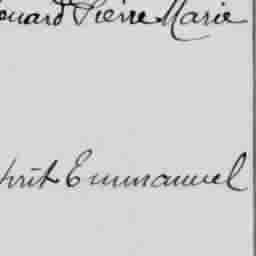 ouard Pierre Marie
prit Emmanuel